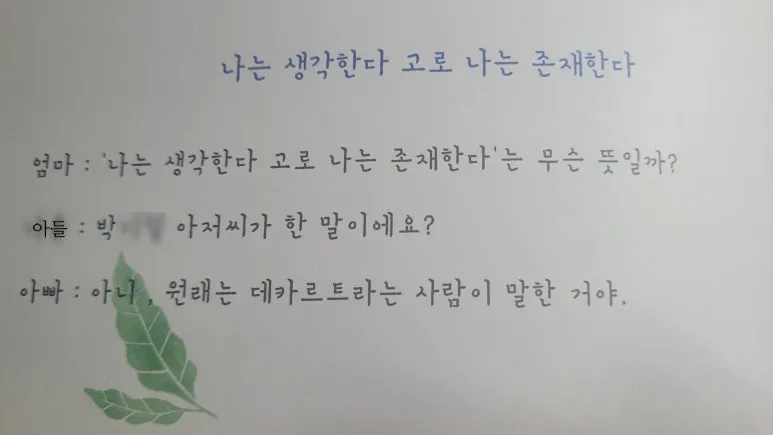 나는 생각한다 고로 나는 존재한다
엄마 : '나는 생각한다 고로 나는 존재한다'는 무슨 뜻일까?
아들 : 박 아저씨가 한 말이에요?
아빠 : 아니, 원래는 데카르트라는 사람이 말한 거야.